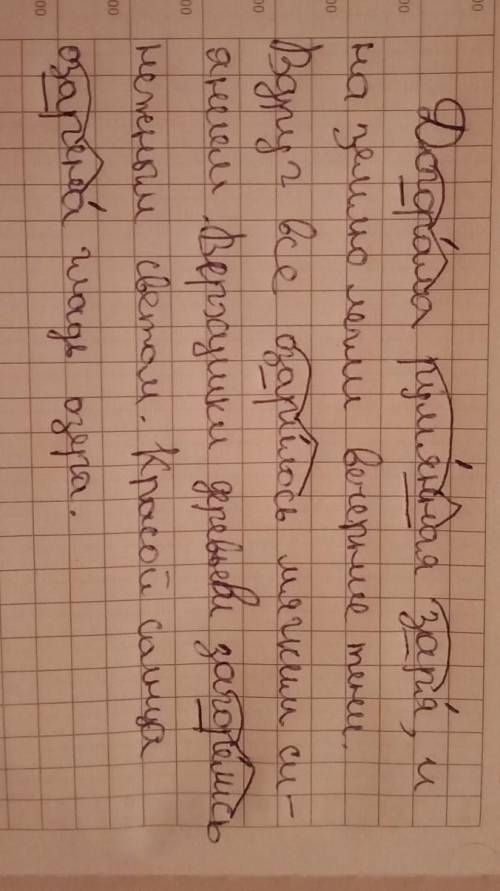 Догорала румянная заря, и
на землю легли вечерние тени.
Вдруг все озарилось мягким си-
янием. Верхушки деревьев загорелись
нежным светом. Красой солнца
озарена гладь озера.